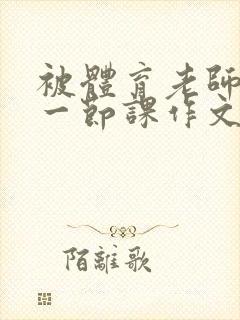 被體育老師
一節課作文
陌離歌